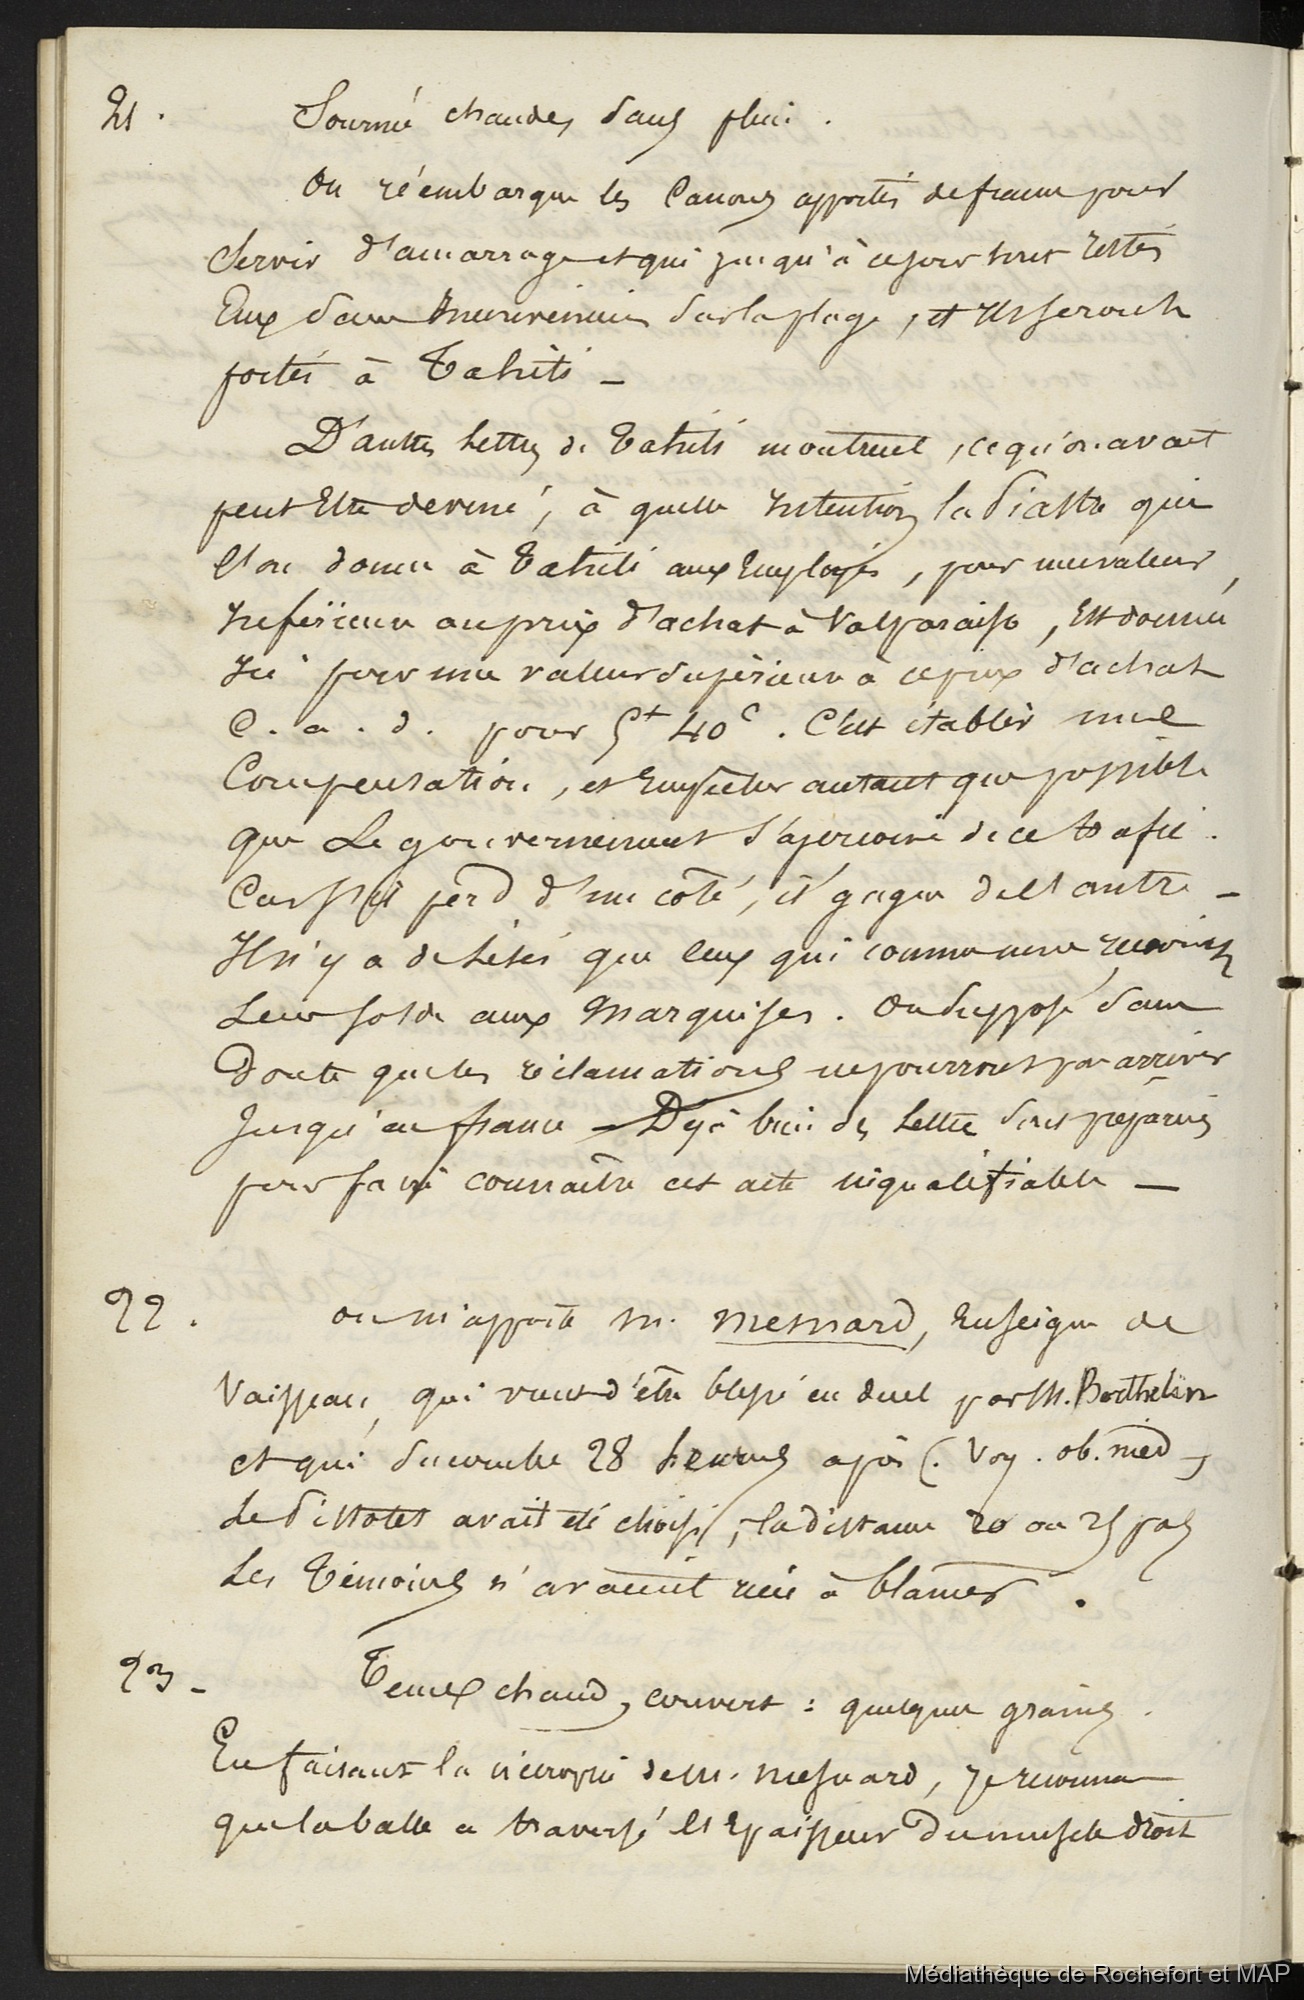 21. Journée chaude, sans pluie.
On réembarque les canons apportés de france pour
servir d'amarrage et qui jusqu'à ce jour sont restés
sur la plage, et ils seront
portés à Tahiti —
D'autres lettres de Tahiti montrent, ce qu'on avait
peut être deviné, à quelle intention la Piastre que
l'on donne à Tahiti aux Employés, pour une valeur,
inférieure au prix d'achat à Valparaiso, est donnée
ici pour une valeur supérieure à ce prix d'achat
C. a. d. pour 5f 40c. C'est établir une
Compensation, et Empêcher autant que possible
que Le gouvernement s'aperçoive de ce trafic.
Car s'il perd d'un côté, il gagne de l'autre —
Il n'y a de lésés que ceux qui comme nous reçoivent
Leur solde aux Marquises. On suppose sans
Doute que les réclamations ne pourront pas arriver
jusqu'en france — Déjà bien des Lettres sont préparées
pour faire connaître cet acte inqualifiable —
22. on m'apporte M. Mesnard, Enseigne de
Vaisseau, qui vient d'être blessé en duel par M. Barthelin
et qui succombe 28 heures après (. Voy. ob. med —
Le Pistolet avait été choisi, la distance 20 ou 25 pas
Les Témoins n'avaient rien à blamer.
23 — Temps chaud, couvert : quelques grains.
En faisant la nécropsie de M. Mesnard, je reconnais
que la balle a traversé l'Epaisseur Du muscle droit
Médiathèque de Rochefort et MAP